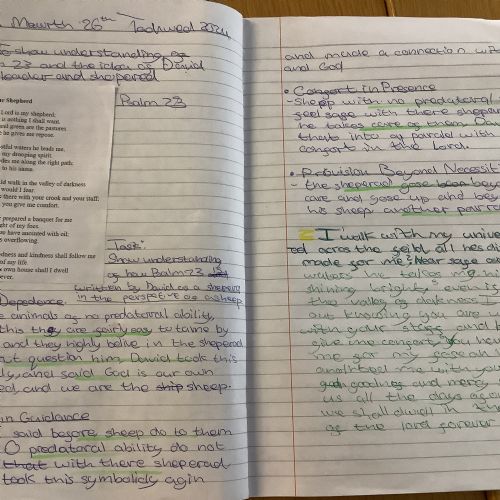 Mawrth 26th Tachwedd 2024
To show understanding of
23 and the idea of David
leader and sheperd
Psalm 23
Shepherd
Lord is my shepherd;
is nothing I shall want.
and green are the pastures
he gives me repose.
restful waters he leads me,
my drooping spirit.
guides me along the right path;
to his name.
should walk in the valley of darkness
would I fear.
there with your crook and your staff;
you give me comfort.
prepared a banquet for me
sight of my foes.
you have anointed with oil;
is overflowing.
goodness and kindness shall follow me
of my life
own house shall I dwell
ever.
Task:
Show understanding
of how Psalm 23 is
written by David as a sheperd
in the perspective of a sheep
Dependence
animals of no predatoral ability,
this they are fairly easy to tame by
and they highly belive in the sheperad
question him. David took this
and said God is our own
and we are the ship sheep.
in Guidance
said before sheep do to them
O predatoral ability do not
that with there sheperad
took this symbolicly agin
and made a connection with
and God
• Comfort in Presence
- Sheep with no predatoral
feel safe with there sheperad
he takes care of them
this into a parcel with
comfort in the lord.
• Provision Beyond Necessit
- the sheperad gose been bey
care and gose up and bey
his sheep another
I walk with my unive
across the feild all hes
made for me. Near
waters he takes me
shining bright, even if
the valley of darkness I
out knowing you are
with your staff and
give me comfort. You have
me for my foes
me with
goodnes and mercy
us all the days
we shall dwell in
of the lord forever